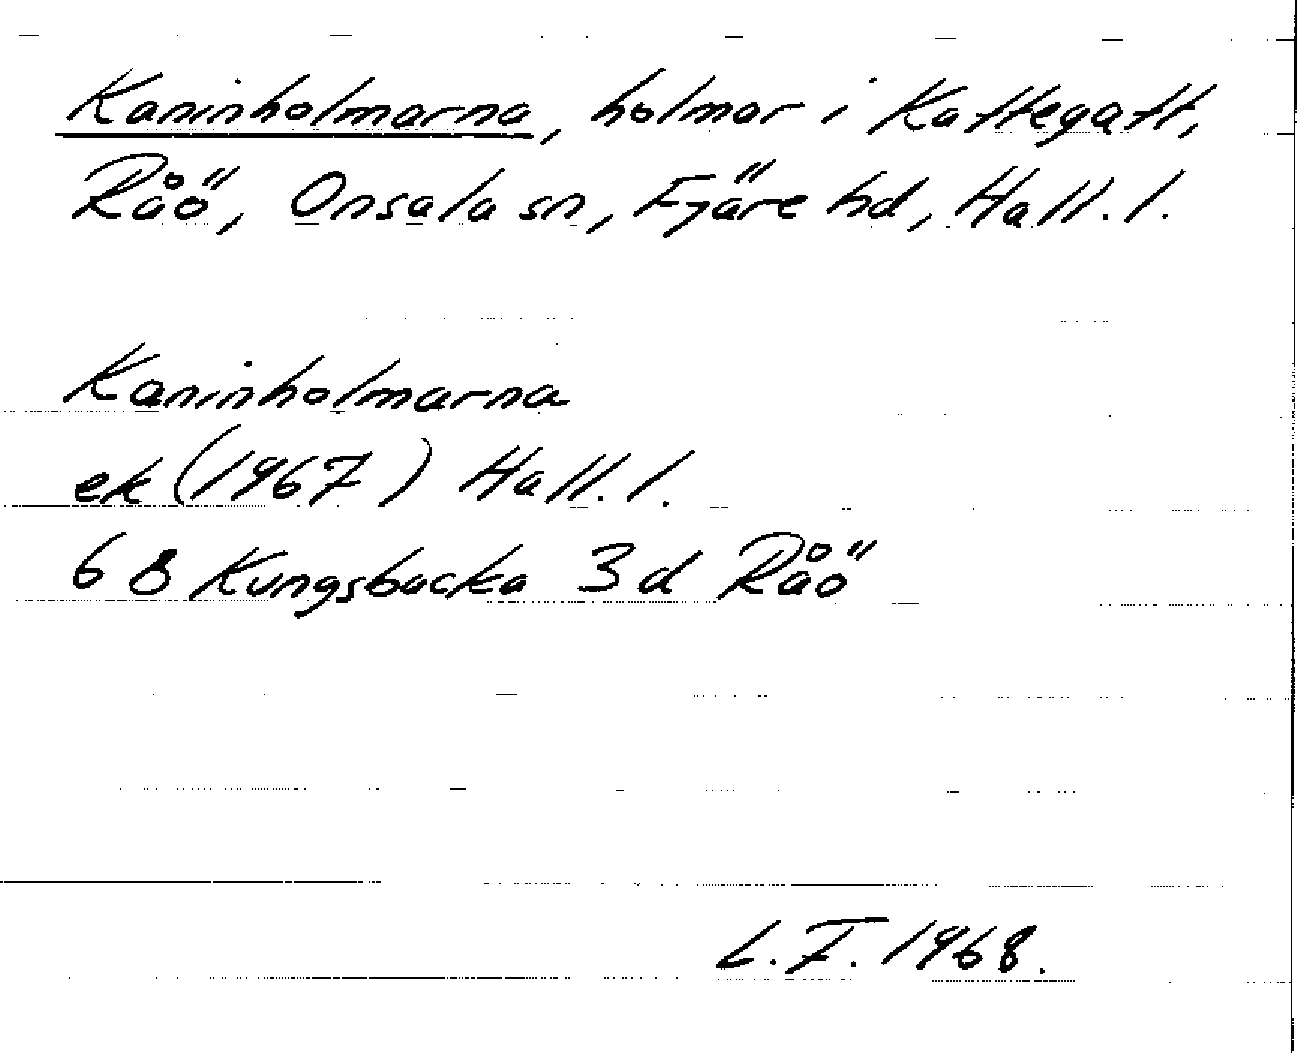 Kaninholmarna, holmar i Kattegatt,
Råö, Onsala sn, Fjäre hd, Hall. l.
Kaninholmarna
ek (1967) Hall. l.
6 B Kungsbacka 3 d Råö
L. F. 1968.